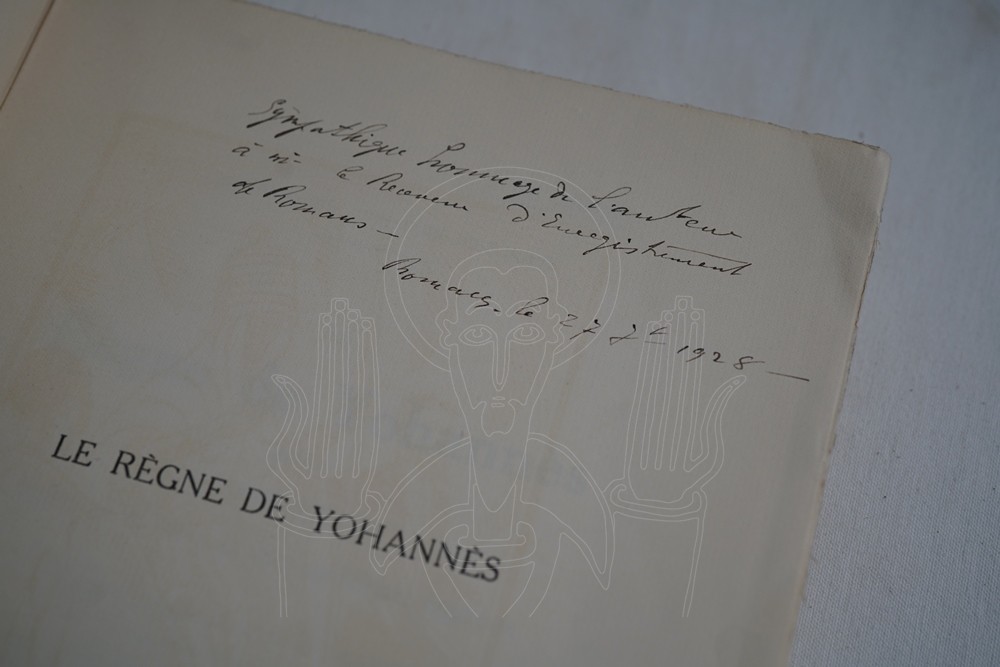 Sympathique hommage de l'auteur
à Mr le Receveur d'Enregistrement
de Romans —
Romans, le 27 7bre 1928 —
LE RÈGNE DE YOHANNÈS